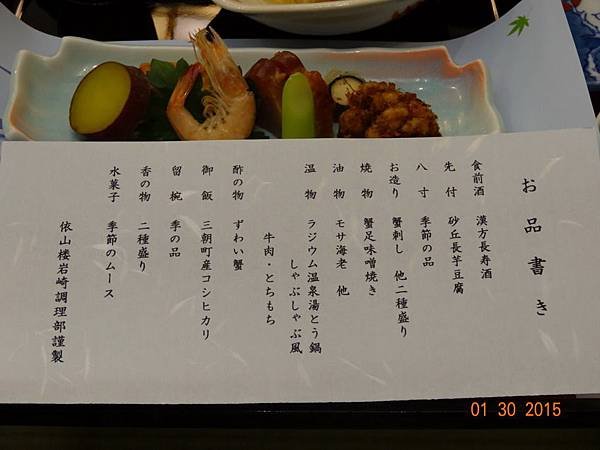 お品書き
食前酒 漢方長寿酒
先付 砂丘長芋豆腐
八寸 季節の品
お造り 蟹刺し 他二種盛り
焼物 蟹足味噌焼き
油物 モサ海老 他
温物 ラジウム温泉湯とう鍋
しゃぶしゃぶ風
牛肉・とちもち
酢の物 ずわい蟹
御飯 三朝町産コシヒカリ
留椀 季の品
香の物 二種盛り
水菓子 季節のムース
依山楼岩崎調理部謹製
01 30 2015